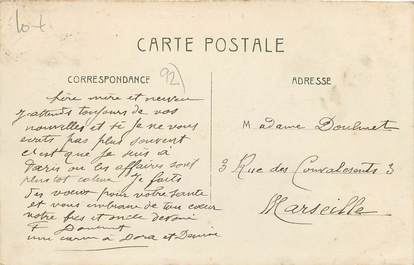 10 +
CARTE POSTALE
CORRESPONDANCE
92
ADRESSE
père mère et neveu
j'attends toujours de vos
nouvelles et si je ne vous
ecrits pas plus souvent
c'est que je suis à
Paris ou les affaires sont
plutot calme je faits
des vœux pour votre santé
et vous embrasse de tout cœur
votre fils et oncle
F Doumet
une à Dora et
Madame Doumet
3 Rue des Convalescents 3
Marseille